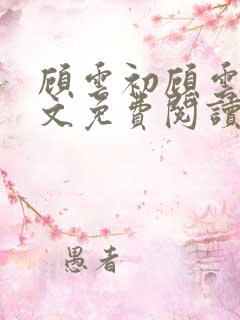 顾雲初顾雲
文免費閱讀
愚者